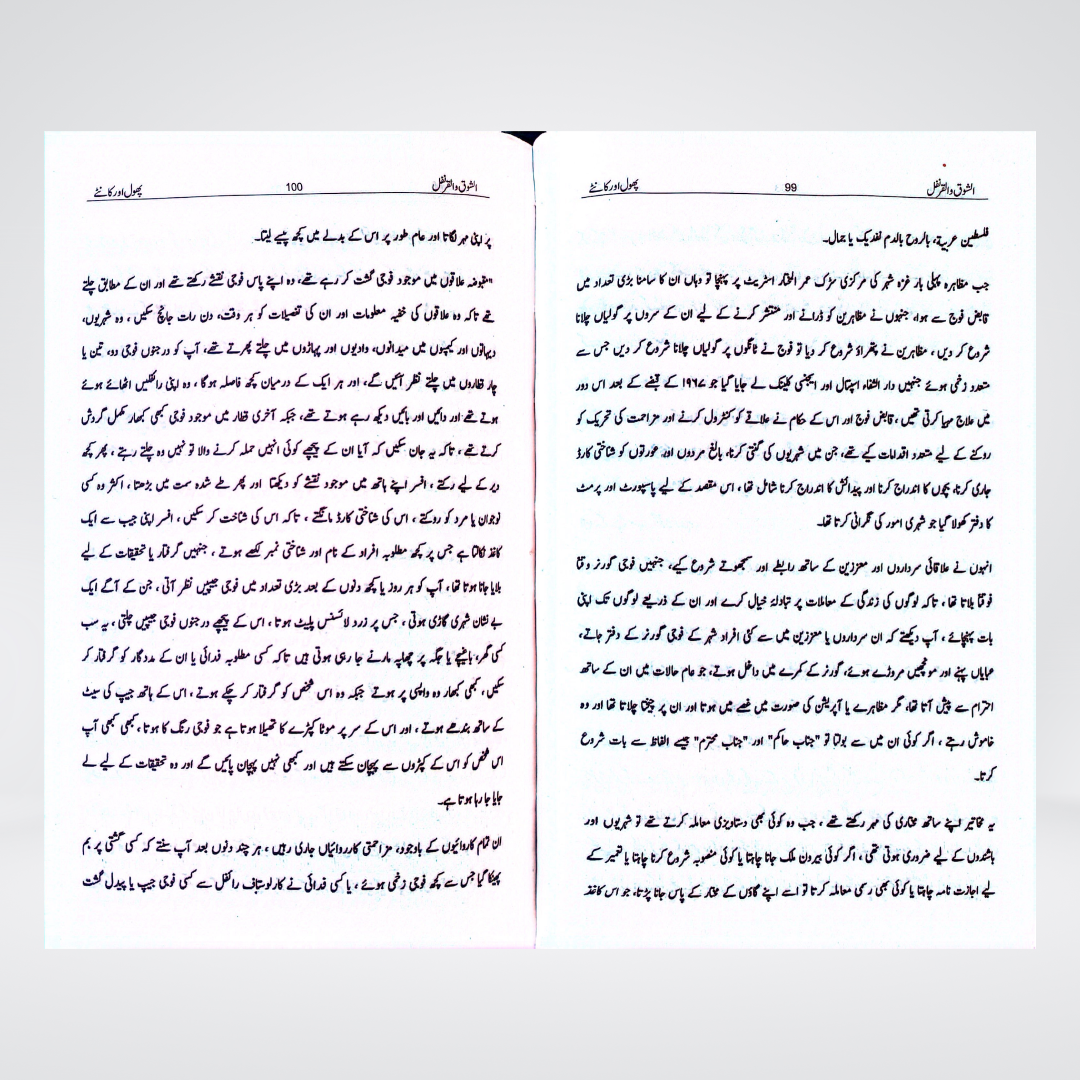 الشوق والقرنفل 99 پھول اور کانٹے
فلسطین عربیۃ، بالروح بالدم نفدیک یا جمال۔
جب مظاہرہ پہلی بار غزہ شہر کی مرکزی سڑک عمر المختار اسٹریٹ پر پہنچا تو وہاں ان کا سامنا بڑی تعداد میں
قابض فوج سے ہوا، جنہوں نے مظاہرین کو ڈرانے اور منتشر کرنے کے لیے ان کے سروں پر گولیاں چلانا
شروع کر دیں ، مظاہرین نے پتھراؤ شروع کر دیا تو فوج نے ٹانگوں پر گولیاں چلانا شروع کر دیں جس سے
متعدد زخمی ہوئے جنہیں دار الشفاء اسپتال اور ایجنسی کلینک لے جایا گیا جو ۱۹۶۷ کے قبضے کے بعد اس دور
میں علاج مہیا کرتی تھیں ، قابض فوج اور اس کے حکام نے علاقے کو کنٹرول کرنے اور مزاحمت کی تحریک کو
روکنے کے لیے متعدد اقدامات کیے تھے، جن میں شہریوں کی گنتی کرنا، بالغ مردوں اور عورتوں کو شناختی کارڈ
جاری کرنا، بچوں کا اندراج کرنا اور پیدائش کا اندراج کرنا شامل تھا ، اس مقصد کے لیے پاسپورٹ اور پرمٹ
کا دفتر کھولا گیا جو شہری امور کی نگرانی کرتا تھا۔
انہوں نے علاقائی سرداروں اور معززین کے ساتھ رابطے اور سمجھوتے شروع کیے، جنہیں فوجی گورنر وقتا
فوقتا بلاتا تھا ، تاکہ لوگوں کی زندگی کے معاملات پر تبادلۂ خیال کرے اور ان کے ذریعے لوگوں تک اپنی
بات پہنچائے ، آپ دیکھتے کہ ان سرداروں یا معززین میں سے کئی افراد شہر کے فوجی گورنر کے دفتر جاتے،
عبایاں پہنے اور مونچھیں مروڑے ہوئے، گورنر کے کمرے میں داخل ہوتے، جو عام حالات میں ان کے ساتھ
احترام سے پیش آتا تھا، مگر مظاہرے یا آپریشن کی صورت میں غصے میں ہوتا اور ان پر چیختا چلاتا تھا اور وہ
خاموش رہتے ، اگر کوئی ان میں سے بولتا تو "جناب حاکم" اور "جناب محترم" جیسے الفاظ سے بات شروع
کرتا۔
یہ مخاتیر اپنے ساتھ مختاری کی مہر رکھتے تھے ، جب وہ کوئی بھی دستاویزی معاملہ کرتے تھے تو شہریوں اور
باشندوں کے لیے ضروری ہوتی تھی ، اگر کوئی بیرون ملک جانا چاہتا یا کوئی منصوبہ شروع کرنا چاہتا یا تعمیر کے
لیے اجازت نامہ چاہتا یا کوئی بھی رسمی معاملہ کرتا تو اسے اپنے گاؤں کے مختار کے پاس جانا پڑتا، جو اس کاغذ
الشوق والقرنفل 100 پھول اور کانٹے
پر اپنی مہر لگاتا اور عام طور پر اس کے بدلے میں کچھ پیسے لیتا۔
"مقبوضہ علاقوں میں موجود فوجی گشت کر رہے تھے، وہ اپنے پاس فوجی نقشے رکھتے تھے اور ان کے مطابق چلتے
تھے تاکہ وہ علاقوں کی خفیہ معلومات اور ان کی تفصیلات کو ہر وقت، دن رات جانچ سکیں ، وہ شہروں،
دیہاتوں اور کیمپوں میں میدانوں، وادیوں اور پہاڑوں میں چلتے پھرتے تھے، آپ کو درجنوں فوجی دو، تین یا
چار قطاروں میں چلتے نظر آئیں گے، اور ہر ایک کے درمیان کچھ فاصلہ ہوگا ، وہ اپنی رائفلیں اٹھائے ہوئے
ہوتے تھے اور دائیں اور بائیں دیکھ رہے ہوتے تھے، جبکہ آخری قطار میں موجود فوجی کبھی کبھار مکمل گردش
کرتے تھے ، تاکہ یہ جان سکیں کہ آیا ان کے پیچھے کوئی انہیں حملہ کرنے والا تو نہیں وہ چلتے رہتے ، پھر کچھ
دیر کے لیے رکتے ، افسر اپنے ہاتھ میں موجود نقشے کو دیکھتا اور پھر طے شدہ سمت میں بڑھتا ، اکثر وہ کسی
نوجوان یا مرد کو روکتے ، اس کی شناختی کارڈ مانگتے ، تاکہ اس کی شناخت کر سکیں ، افسر اپنی جیب سے ایک
کاغذ نکالتا ہے جس پر کچھ مطلوبہ افراد کے نام اور شناختی نمبر لکھے ہوتے ، جنہیں گرفتار یا تحقیقات کے لیے
بلایا جانا ہوتا تھا ، آپ کو ہر روز یا کچھ دنوں کے بعد بڑی تعداد میں فوجی جیپیں نظر آتی ، جن کے آگے ایک
بے نشان شہری گاڑی ہوتی ، جس پر زرد لائسنس پلیٹ ہوتا ، اس کے پیچھے درجنوں فوجی جیپیں چلتی ، یہ سب
کسی گھر، باغیچے یا جگہ پر چھاپہ مارنے جا رہی ہوتی ہیں تاکہ کسی مطلوبہ فدائی یا ان کے مددگار کو گرفتار کر
سکیں ، کبھی کبھار وہ واپسی پر ہوتے جبکہ وہ اس شخص کو گرفتار کر چکے ہوتے ، اس کے ہاتھ جیپ کی سیٹ
کے ساتھ بندھے ہوتے ، اور اس کے سر پر موٹا کپڑے کا تھیلا ہوتا ہے جو فوجی رنگ کا ہوتا ، کبھی کبھی آپ
اس شخص کو اس کے کپڑوں سے پہچان سکتے ہیں اور کبھی نہیں پہچان پائیں گے اور وہ تحقیقات کے لیے لے
جایا جا رہا ہوتا ہے۔
ان تمام کاروائیوں کے باوجود، مزاحمتی کارروائیاں جاری رہیں ، ہر چند دنوں بعد آپ سنتے کہ کسی گشتی پر بم
پھینکا گیا جس سے کچھ فوجی زخمی ہوئے ، یا کسی فدائی نے کارلوستاف رائفل سے کسی فوجی جیپ یا پیدل گشت